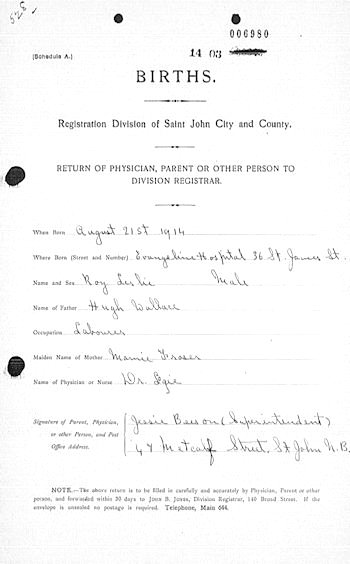 528
006980
14 03
(Schedule A.)
BIRTHS.
Registration Division of Saint John City and County.
RETURN OF PHYSICIAN, PARENT OR OTHER PERSON TO
DIVISION REGISTRAR.
When Born August 21st 1914
Where Born (Street and Number) Evangeline Hospital 36 St. James St.
Name and Sex Roy Leslie Male
Name of Father Hugh Wallace
Occupation Labourer
Maiden Name of Mother Mamie Fraser
Name of Physician or Nurse Dr.
Signature of Parent, Physician, Jessie (Superintendent)
or other Person, and Post
Office Address. 47 Metcalf Street, St John N.B.
NOTE.—The above return is to be filled in carefully and accurately by Physician, Parent or other
person, and forwarded within 30 days to JOHN B. JONES, Division Registrar, 140 Broad Street. If the
envelope is unsealed no postage is required. Telephone, Main 644.